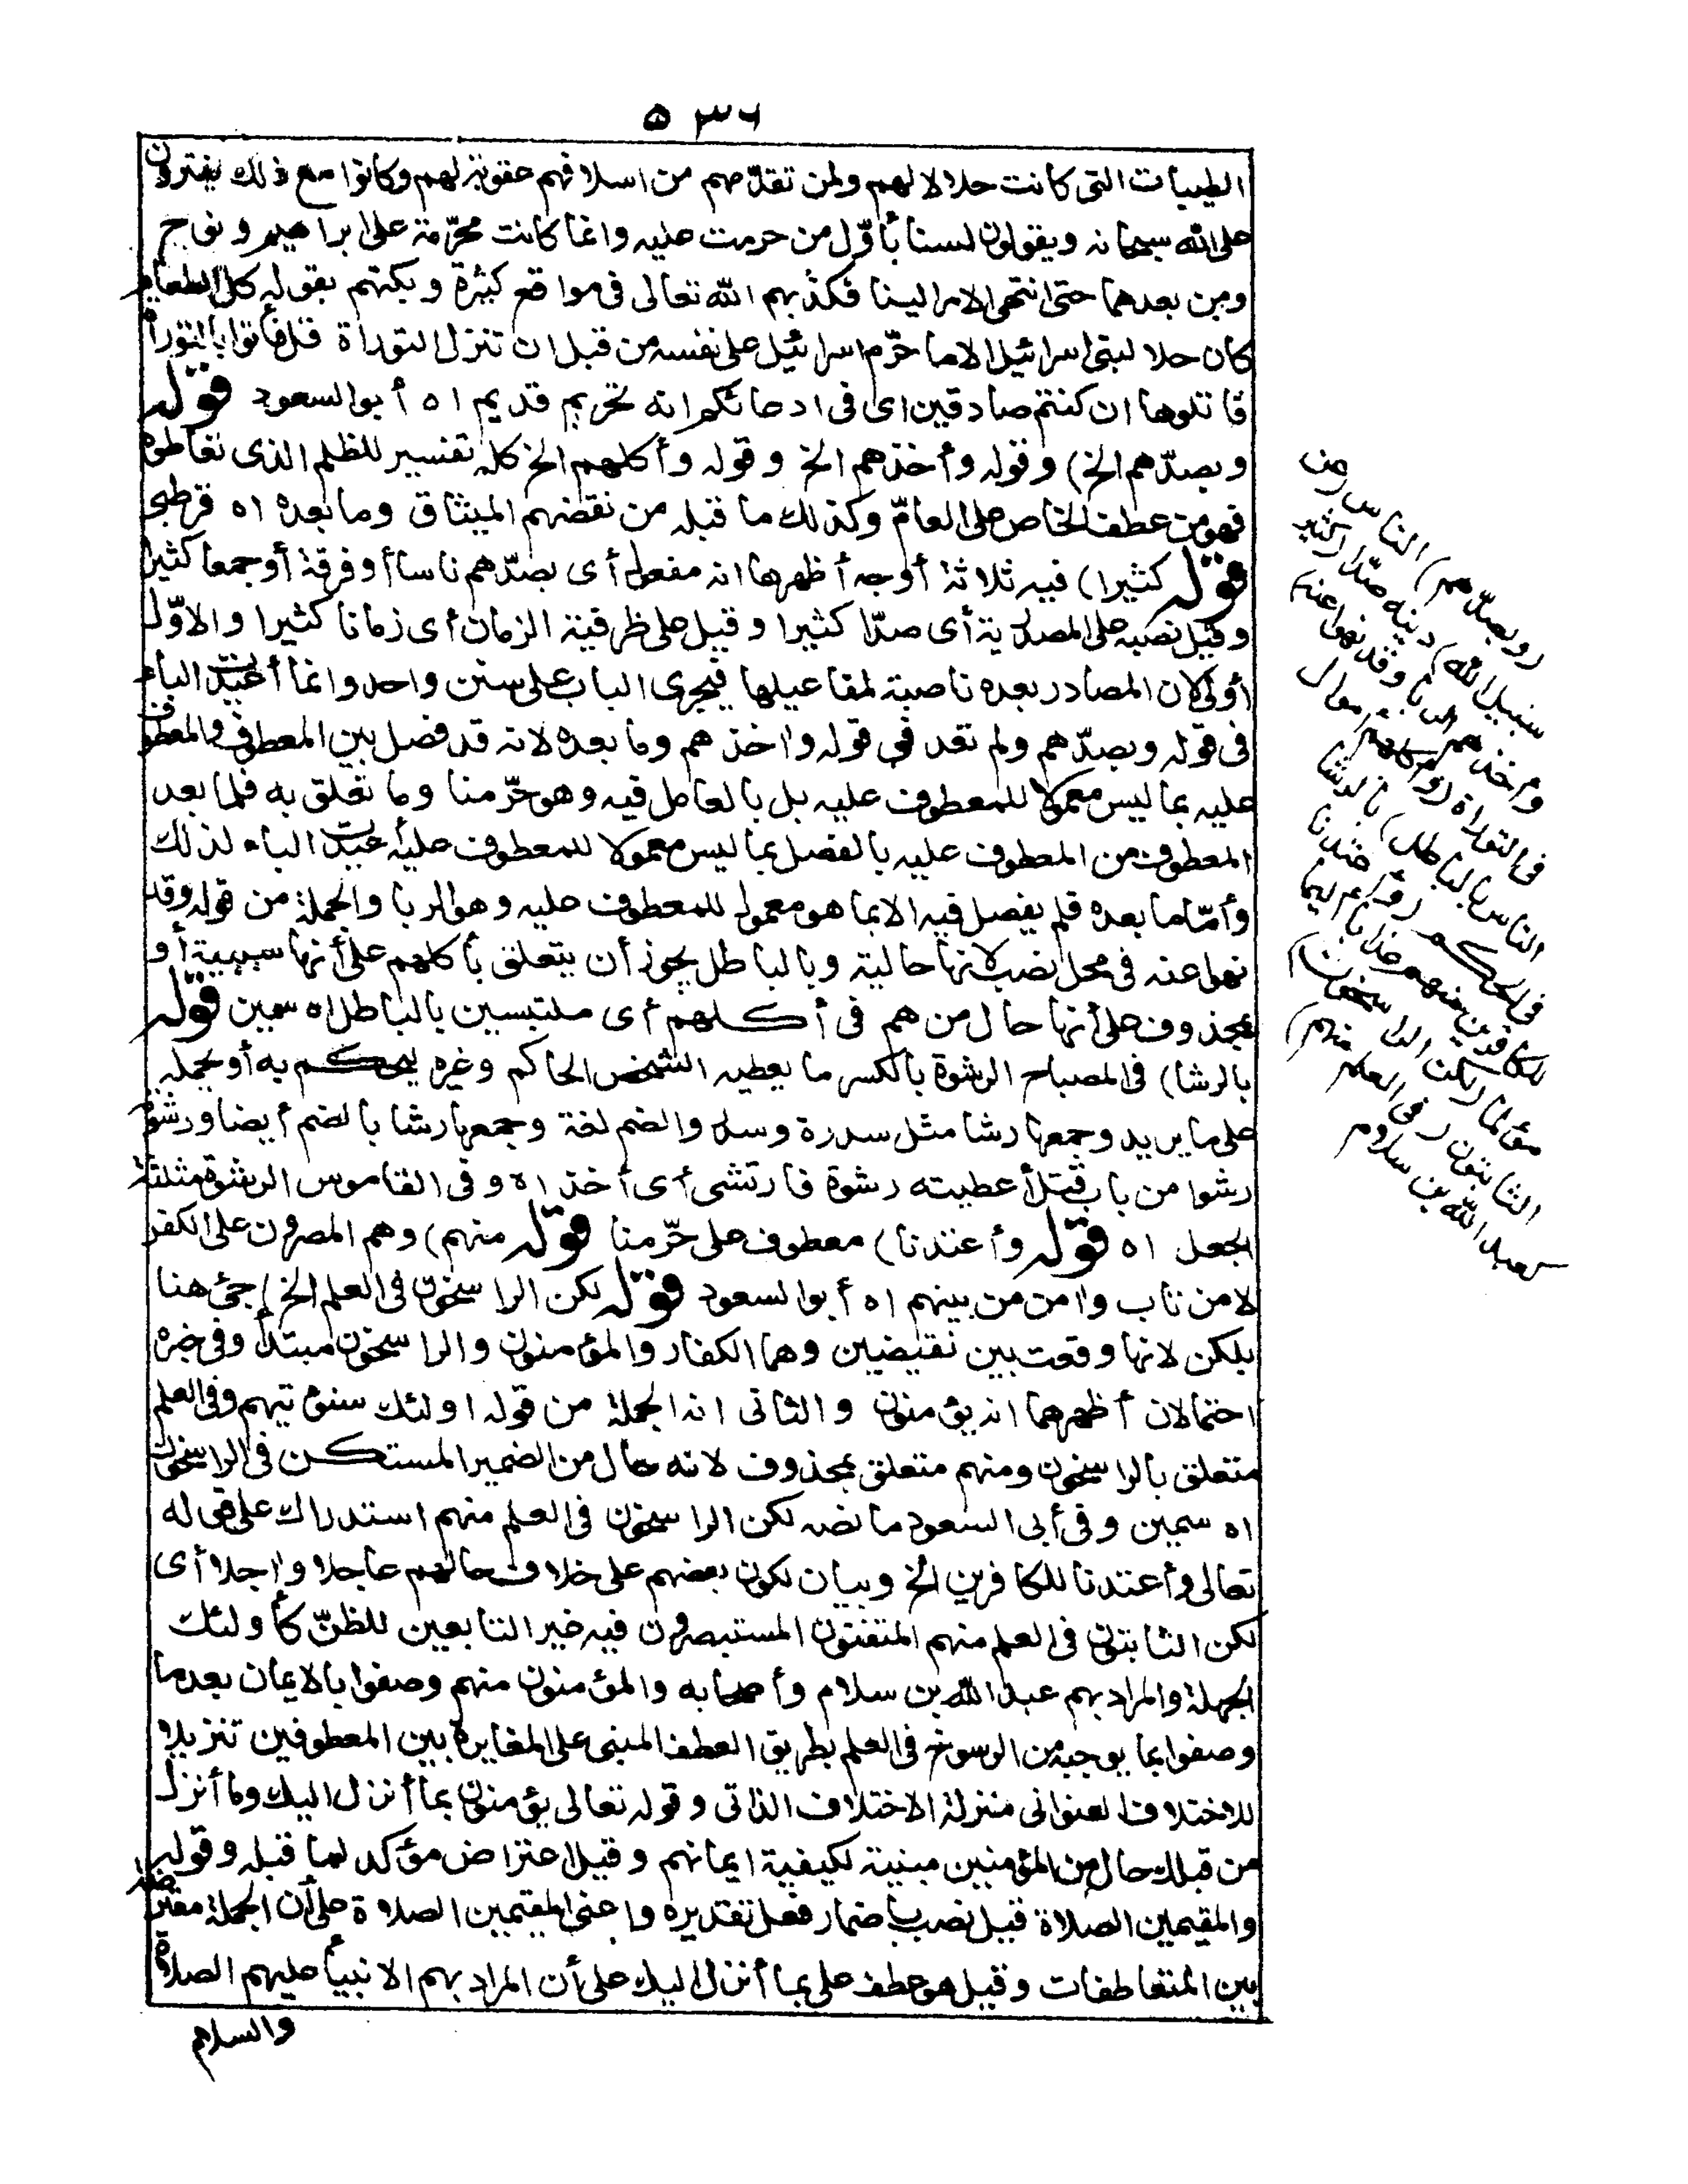 ٥٣٦
الطيبات التى كانت حلالا لهم ولمن تقدّمهم من اسلافهم عقوبة لهم وكانوا مع ذلك يفترون
على الله سبحانه ويقولون لسنا بأوّل من حرمت عليه وانما كانت محرّمة على ابراهيم ونوح
ومن بعدهما حتى انتهى الامر الينا فكذبهم الله تعالى فى مواقع كثيرة وبكتهم بقوله كل الطعام
كان حلا لبنى اسرائيل الا ما حرّم اسرائيل على نفسه من قبل ان تنزل التوراة قل فأتوا بالتوراة
فاتلوها ان كنتم صادقين اى فى ادعائكم انه تحريم قديم اه أبو السعود قوله
وبصدّهم الخ) وقوله وأخذهم الخ وقوله وأكلهم الخ كله تفسير للظلم الذى تعاطوه
فهو من عطف الخاص على العامّ وكذلك ما قبله من نقضهم الميثاق وما بعده اه قرطبى
قوله كثيرا) فيه ثلاثة أوجه أظهرها انه مفعول أى بصدّهم ناسا أو فرقة أو جمعا كثيرا
وقيل نصبه على المصدرية أى صدّا كثيرا وقيل على ظرفية الزمان أى زمانا كثيرا والاوّل
أولى لان المصادر بعده ناصبة لمفاعيلها فيجرى الباب على سنن واحد وانما أعيدت الباء
فى قوله وبصدّهم ولم تعد فى قوله وأخذهم وما بعده لانه قد فصل بين المعطوف والمعطوف
عليه بما ليس معمولا للمعطوف عليه بل بالعامل فيه وهو حرّمنا وما تعلق به فلما بعد
المعطوف من المعطوف عليه بالفصل بما ليس معمولا للمعطوف عليه أعيدت الباء لذلك
وأمّا ما بعده فلم يفصل فيه الا بما هو معمول للمعطوف عليه وهو الربا والجملة من قوله وقد
نهوا عنه فى محل نصب لانها حالية وبالباطل يجوز أن يتعلق بأكلهم على أنها سببية أو
بمحذوف على أنها حال من هم فى أكلهم أى ملتبسين بالباطل اه سمين قوله
بالرشا) فى المصباح الرشوة بالكسر ما يعطيه الشخص الحاكم وغيره ليحكم به أو يحمله
على ما يريد وجمعها رشا مثل سدرة وسدر والضم لغة وجمعها رشا بالضم أيضا ورشوته
رشوا من باب قتل أعطيته رشوة فارتشى أى أخذ اه وفى القاموس الرشوة مثلثة
الجعل اه قوله وأعتدنا) معطوف على حرّمنا قوله منهم) وهم المصرون على الكفر
لا من تاب وامن من بينهم اه أبو السعود قوله لكن الراسخون فى العلم الخ) جئ هنا
بلكن لانها وقعت بين نقيضين وهما الكفار والمؤمنون والراسخون مبتدأ وفى خبره
احتمالان أظهرهما انه يؤمنون والثانى انه الجملة من قوله اولئك سنؤتيهم وفى العلم
متعلق بالراسخون ومنهم متعلق بمحذوف لانه حال من الضمير المستكن فى الراسخون
اه سمين وفى أبى السعود ما نصه لكن الراسخون فى العلم منهم استدراك على قوله
تعالى وأعتدنا للكافرين الخ وبيان لكون بعضهم على خلاف حالهم عاجلا واجلا أى
لكن الثابتون فى العلم منهم المتقنون المستبصرون فيه غير التابعين للظنّ كأولئك
الجهلة والمراد بهم عبد الله بن سلام وأصحابه والمؤمنون منهم وصفوا بالايمان بعد ما
وصفوا بما يوجبه من الرسوخ فى العلم بطريق العطف المبنى على المغايرة بين المعطوفين تنزيلا
للاختلاف العنوانى منزلة الاختلاف الذاتى وقوله تعالى يؤمنون بما أنزل اليك وما أنزل
من قبلك حال من المؤمنين مبنية لكيفية ايمانهم وقيل اعتراض مؤكد لما قبله وقوله
والمقيمين الصلاة قيل نصب باضمار فعل تقديره واعنى المقيمين الصلاة على أن الجملة معترضة
بين المتعاطفات وقيل هو عطف على بما أنزل اليك على أن المراد بهم الانبيأ عليهم الصلاة
والسلام
(وبصدّهم) الناس (عن
سبيل الله) دينه صدّا (كثيرا
وأخذهم الربا وقد نهوا عنه)
فى التوراة (وأكلهم أموال
الناس بالباطل) بالرشا
فى الحكم (وأعتدنا
للكافرين منهم عذابا أليما)
مؤلما (لكن الراسخون)
الثابتون (فى العلم منهم)
كعبد الله بن سلام